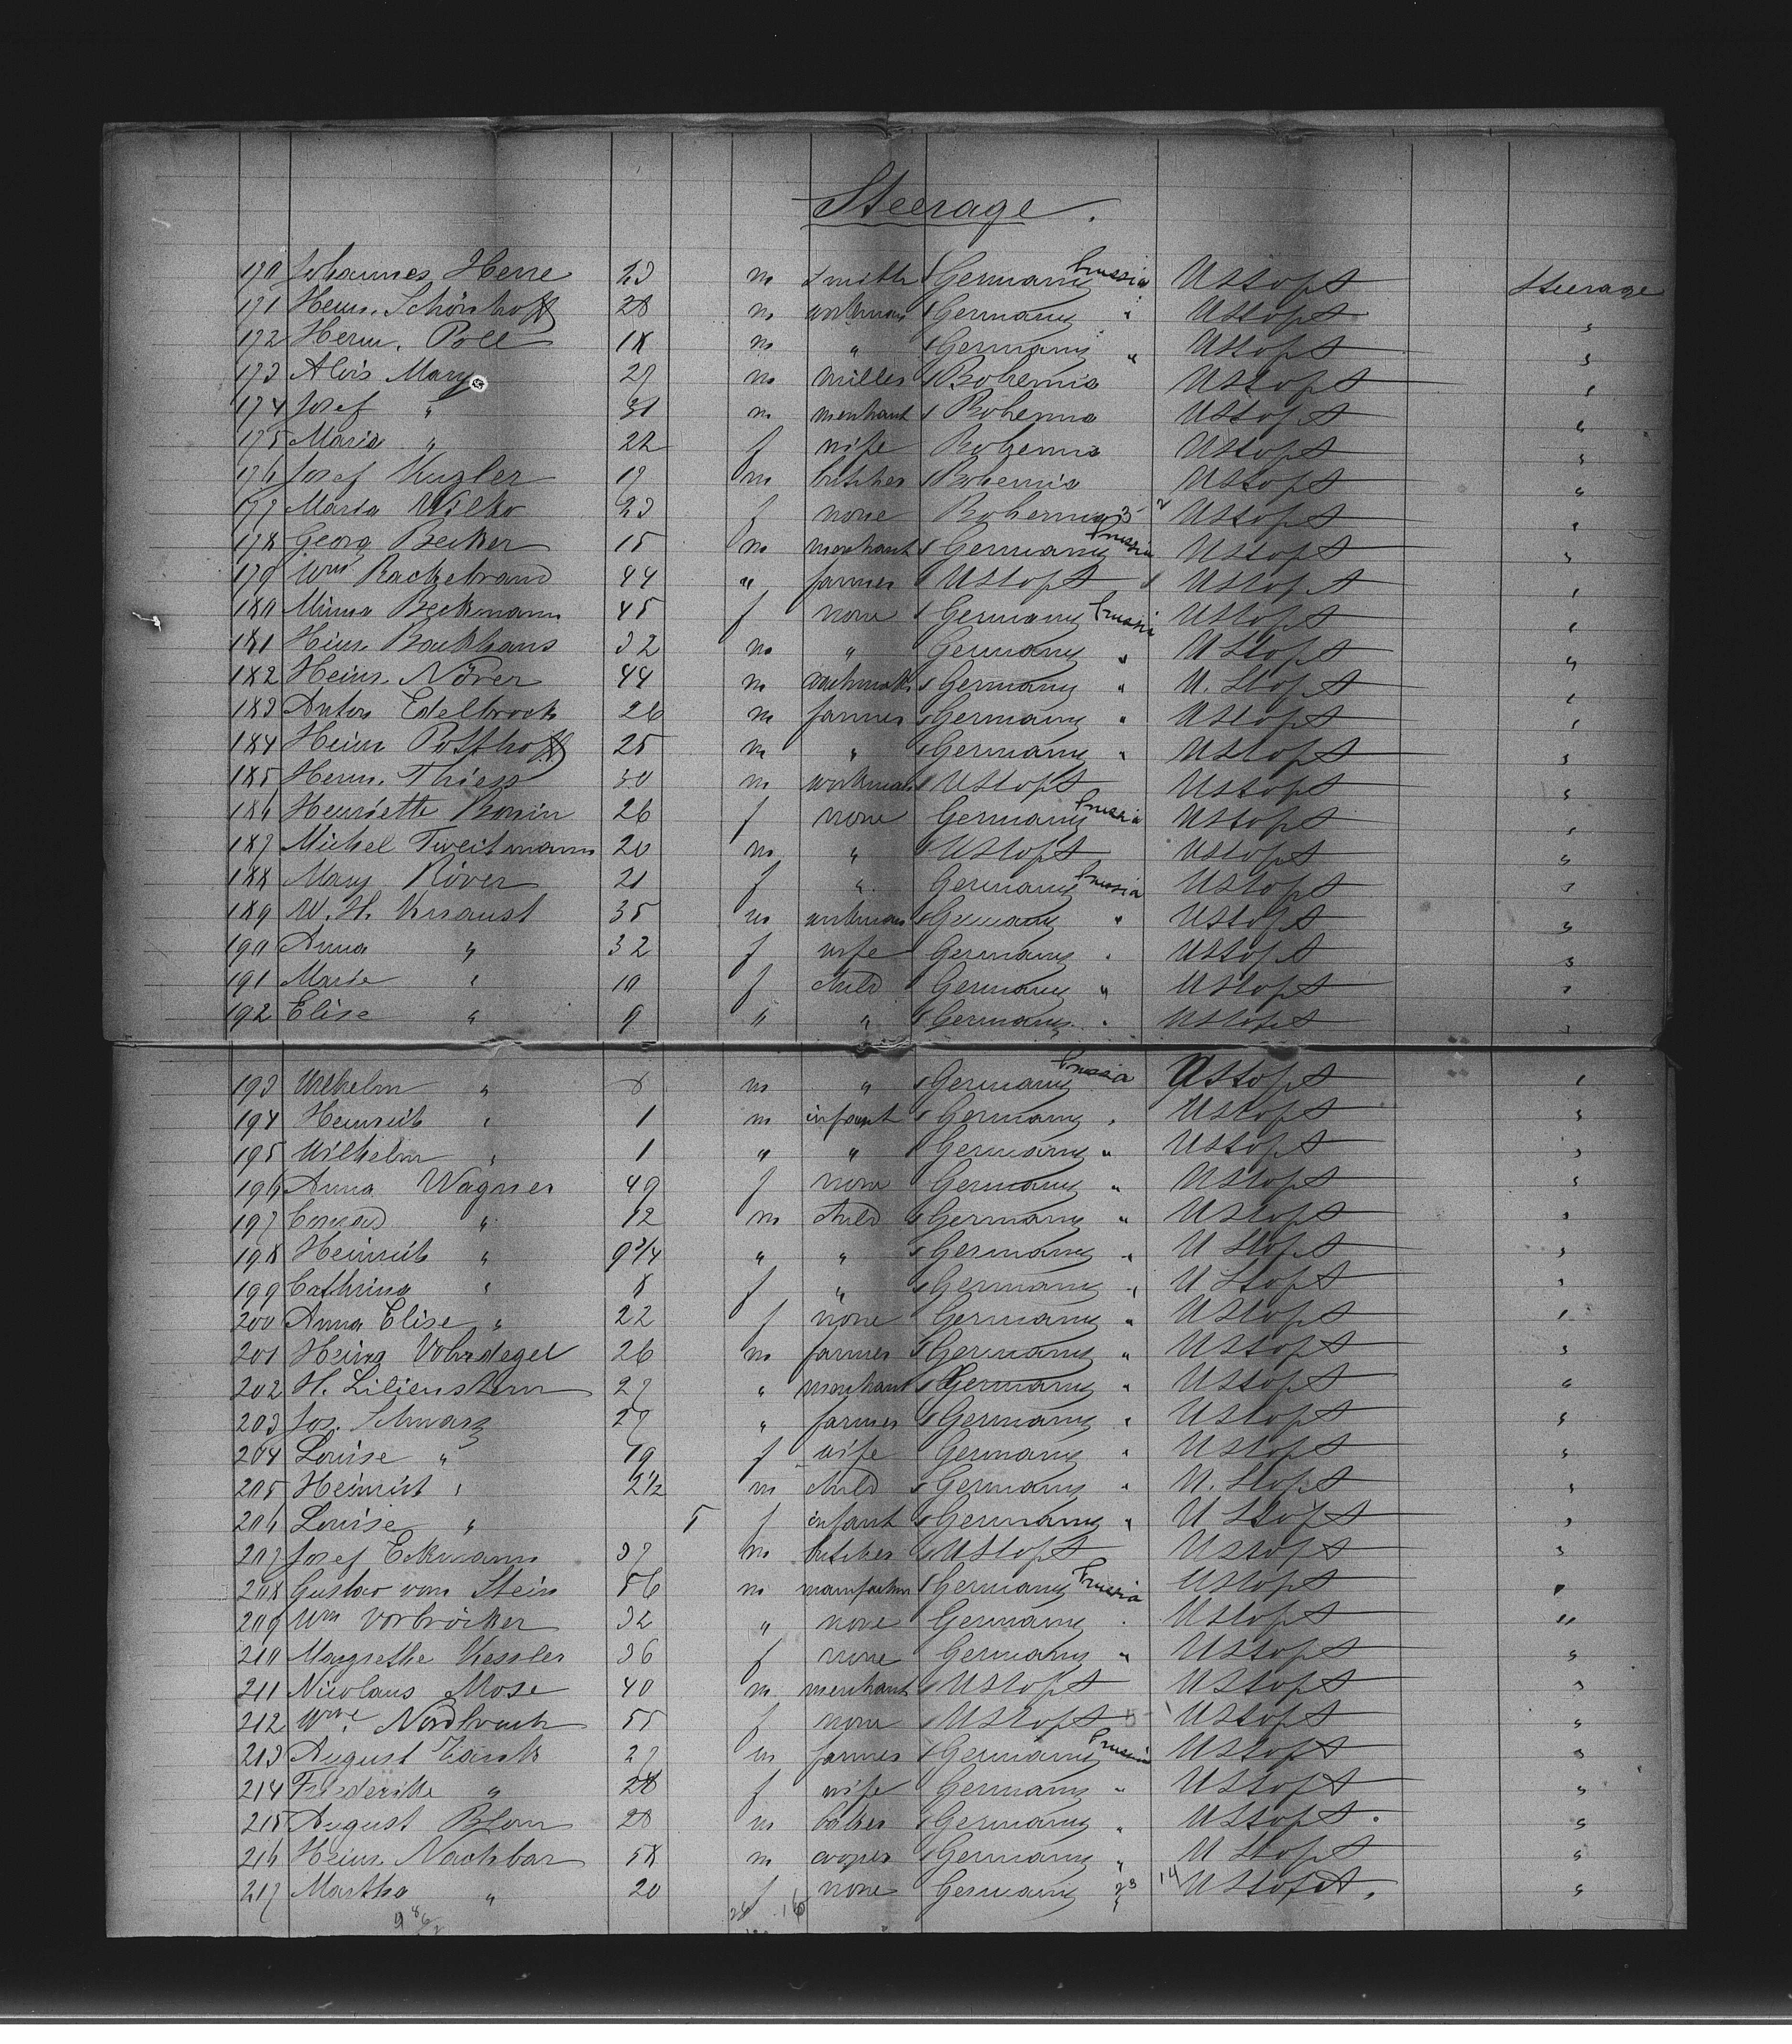 Steerage.
170 Johannes Herre 23 m smith Germany Prussia U S of A Steerage
171 Heinr. Schönhoff 28 m workman Germany " U S of A "
172 Herm. Poll 18 m " Germany " U S of A "
173 Alois Mary 27 m miller Bohemia U S of A "
174 Josef " 31 m merchant Bohemia U S of A "
175 Maria " 22 f wife Bohemia U S of A "
176 Josef Kugler 17 m butcher Bohemia U S of A "
177 Maria Wilko 23 f none Bohemia U S of A "
178 Georg Becker 15 m merchant Germany Prussia U S of A "
179 Wm Rackebrand 44 " farmer U S of A U S of A "
180 Minna Beckmann 45 f none Germany Prussia U S of A "
181 Heinr. Backhaus 32 m " Germany " U S of A "
182 Heinr. Növer 44 m Germany " U. S of A "
183 Anton Edelbrock 26 m farmer Germany " U S of A "
184 Heinr. Posthoff 25 m " Germany " U S of A "
185 Herm. Thiess 30 m workman U S of A U S of A "
186 Henriette Bonin 26 f none Germany Prussia U S of A "
187 Michel Tweitmann 20 m " U S of A U S of A "
188 Mary Röver 21 f " Germany Prussia U S of A "
189 W. H. 35 m workman Germany " U S of A "
190 Anna " 32 f wife Germany " U S of A "
191 Marie " 10 f child Germany " U S of A "
192 Elise " 9 " " Germany " U S of A "
193 Wilhelm " m " Germany Prussia U S of A "
194 Heinrich " 1 m infant Germany " U S of A "
195 Wilhelm " 1 " " Germany " U S of A "
196 Anna Wagner 49 f none Germany " U S of A "
197 Conrad " 12 m child Germany " U S of A "
198 Heinrich " 9 3/4 " " Germany " U S of A "
199 Cathrina " 8 f " Germany " U S of A "
200 Anna Elise " 22 f none Germany " U S of A "
201 Heinr. Vohrdegel 26 m farmer Germany " U S of A "
202 H. Lilienstern 27 " merchant Germany " U S of A "
203 Jos. Schwarz 27 " farmer Germany " U S of A "
204 Louise " 19 f wife Germany " U S of A "
205 Heinrich " 2 1/2 m child Germany " U. S of A "
206 Louise " 5 f infant Germany " U S of A "
207 Josef Eckmann 37 m butcher U S of A U S of A "
208 Gustav von Stein 56 m Germany Prussia U S of A "
209 Wm Vorbröcker 32 " none Germany " U S of A "
210 Margrethe Kessler 36 f none Germany " U S of A "
211 Nicolaus Mose 40 m merchant U S of A U S of A "
212 Wwe. Nordbruch 55 f none U S of A U S of A "
213 August 27 m farmer Germany Prussia U S of A "
214 Friederike " 28 f wife Germany " U S of A "
215 August Blom 28 m baker Germany " U S of A "
216 Heinr. Nachbar 58 m cooper Germany " U S of A "
217 Martha " 20 f none Germany 14 U S of A. "